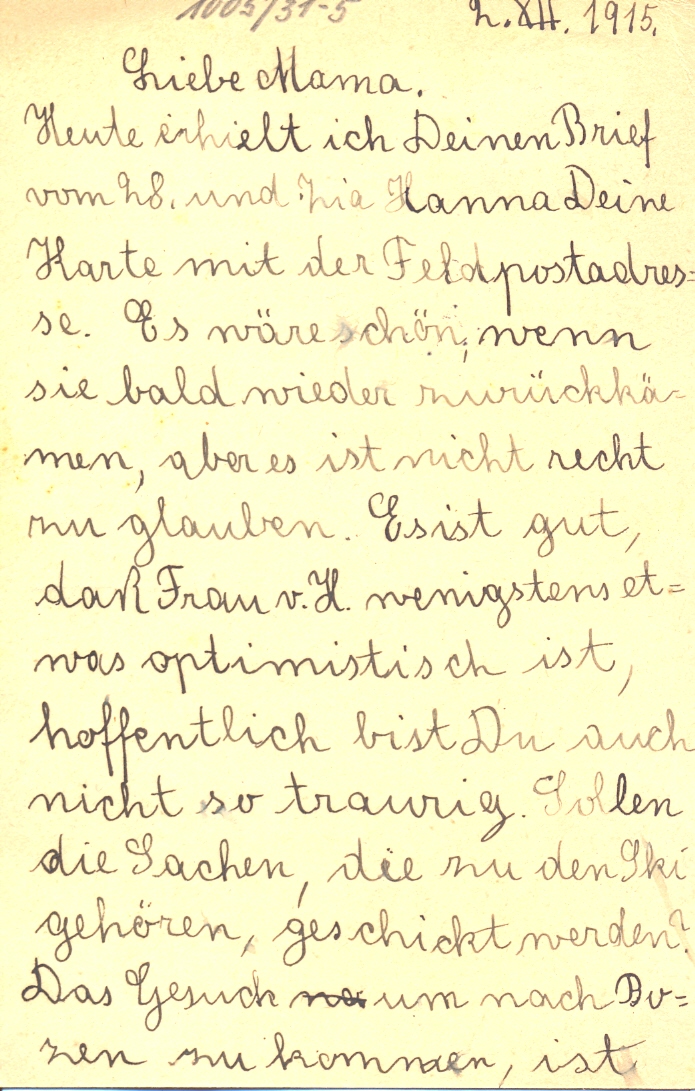 1005/31-5
2. XII. 1915.
Liebe Mama.
Heute erhielt ich Deinen Brief
vom 28. und Pia Hanna Deine
Karte mit der Feldpostadres=
se. Es wäre schön, wenn
sie bald wieder zurückkä=
men, aber es ist nicht recht
zu glauben. Es ist gut,
daß Frau v. H. wenigstens et=
was optimistisch ist,
hoffentlich bist Du auch
nicht so traurig. Sollen
die Sachen, die zu den Ski
gehören, geschickt werden?
Das Gesuch um nach Bo=
zen zu kommen, ist